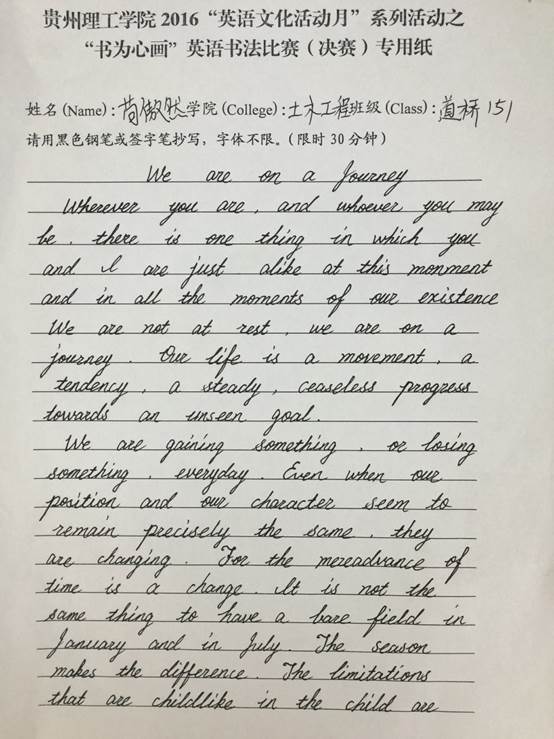 贵州理工学院 2016 “英语文化活动月” 系列活动之
“书为心画” 英语书法比赛 (决赛) 专用纸
姓名 (Name): 苟傲然 学院 (College): 土木工程 班级 (Class): 道桥 151
请用黑色钢笔或签字笔抄写，字体不限。(限时 30 分钟)
We are on a Journey
Wherever you are, and whoever you may
be, there is one thing in which you
and I are just alike at this monment
and in all the moments of our existence
We are not at rest, we are on a
journey. Our life is a movement, a
tendency, a steady, ceaseless progress
towards an unseen goal.
We are gaining something, or losing
something, everyday. Even when our
position and our character seem to
remain precisely the same, they
are changing. For the mereadvance of
time is a change. It is not the
same thing to have a bare field in
January and in July. The season
makes the difference. The limitations
that are childlike in the child are